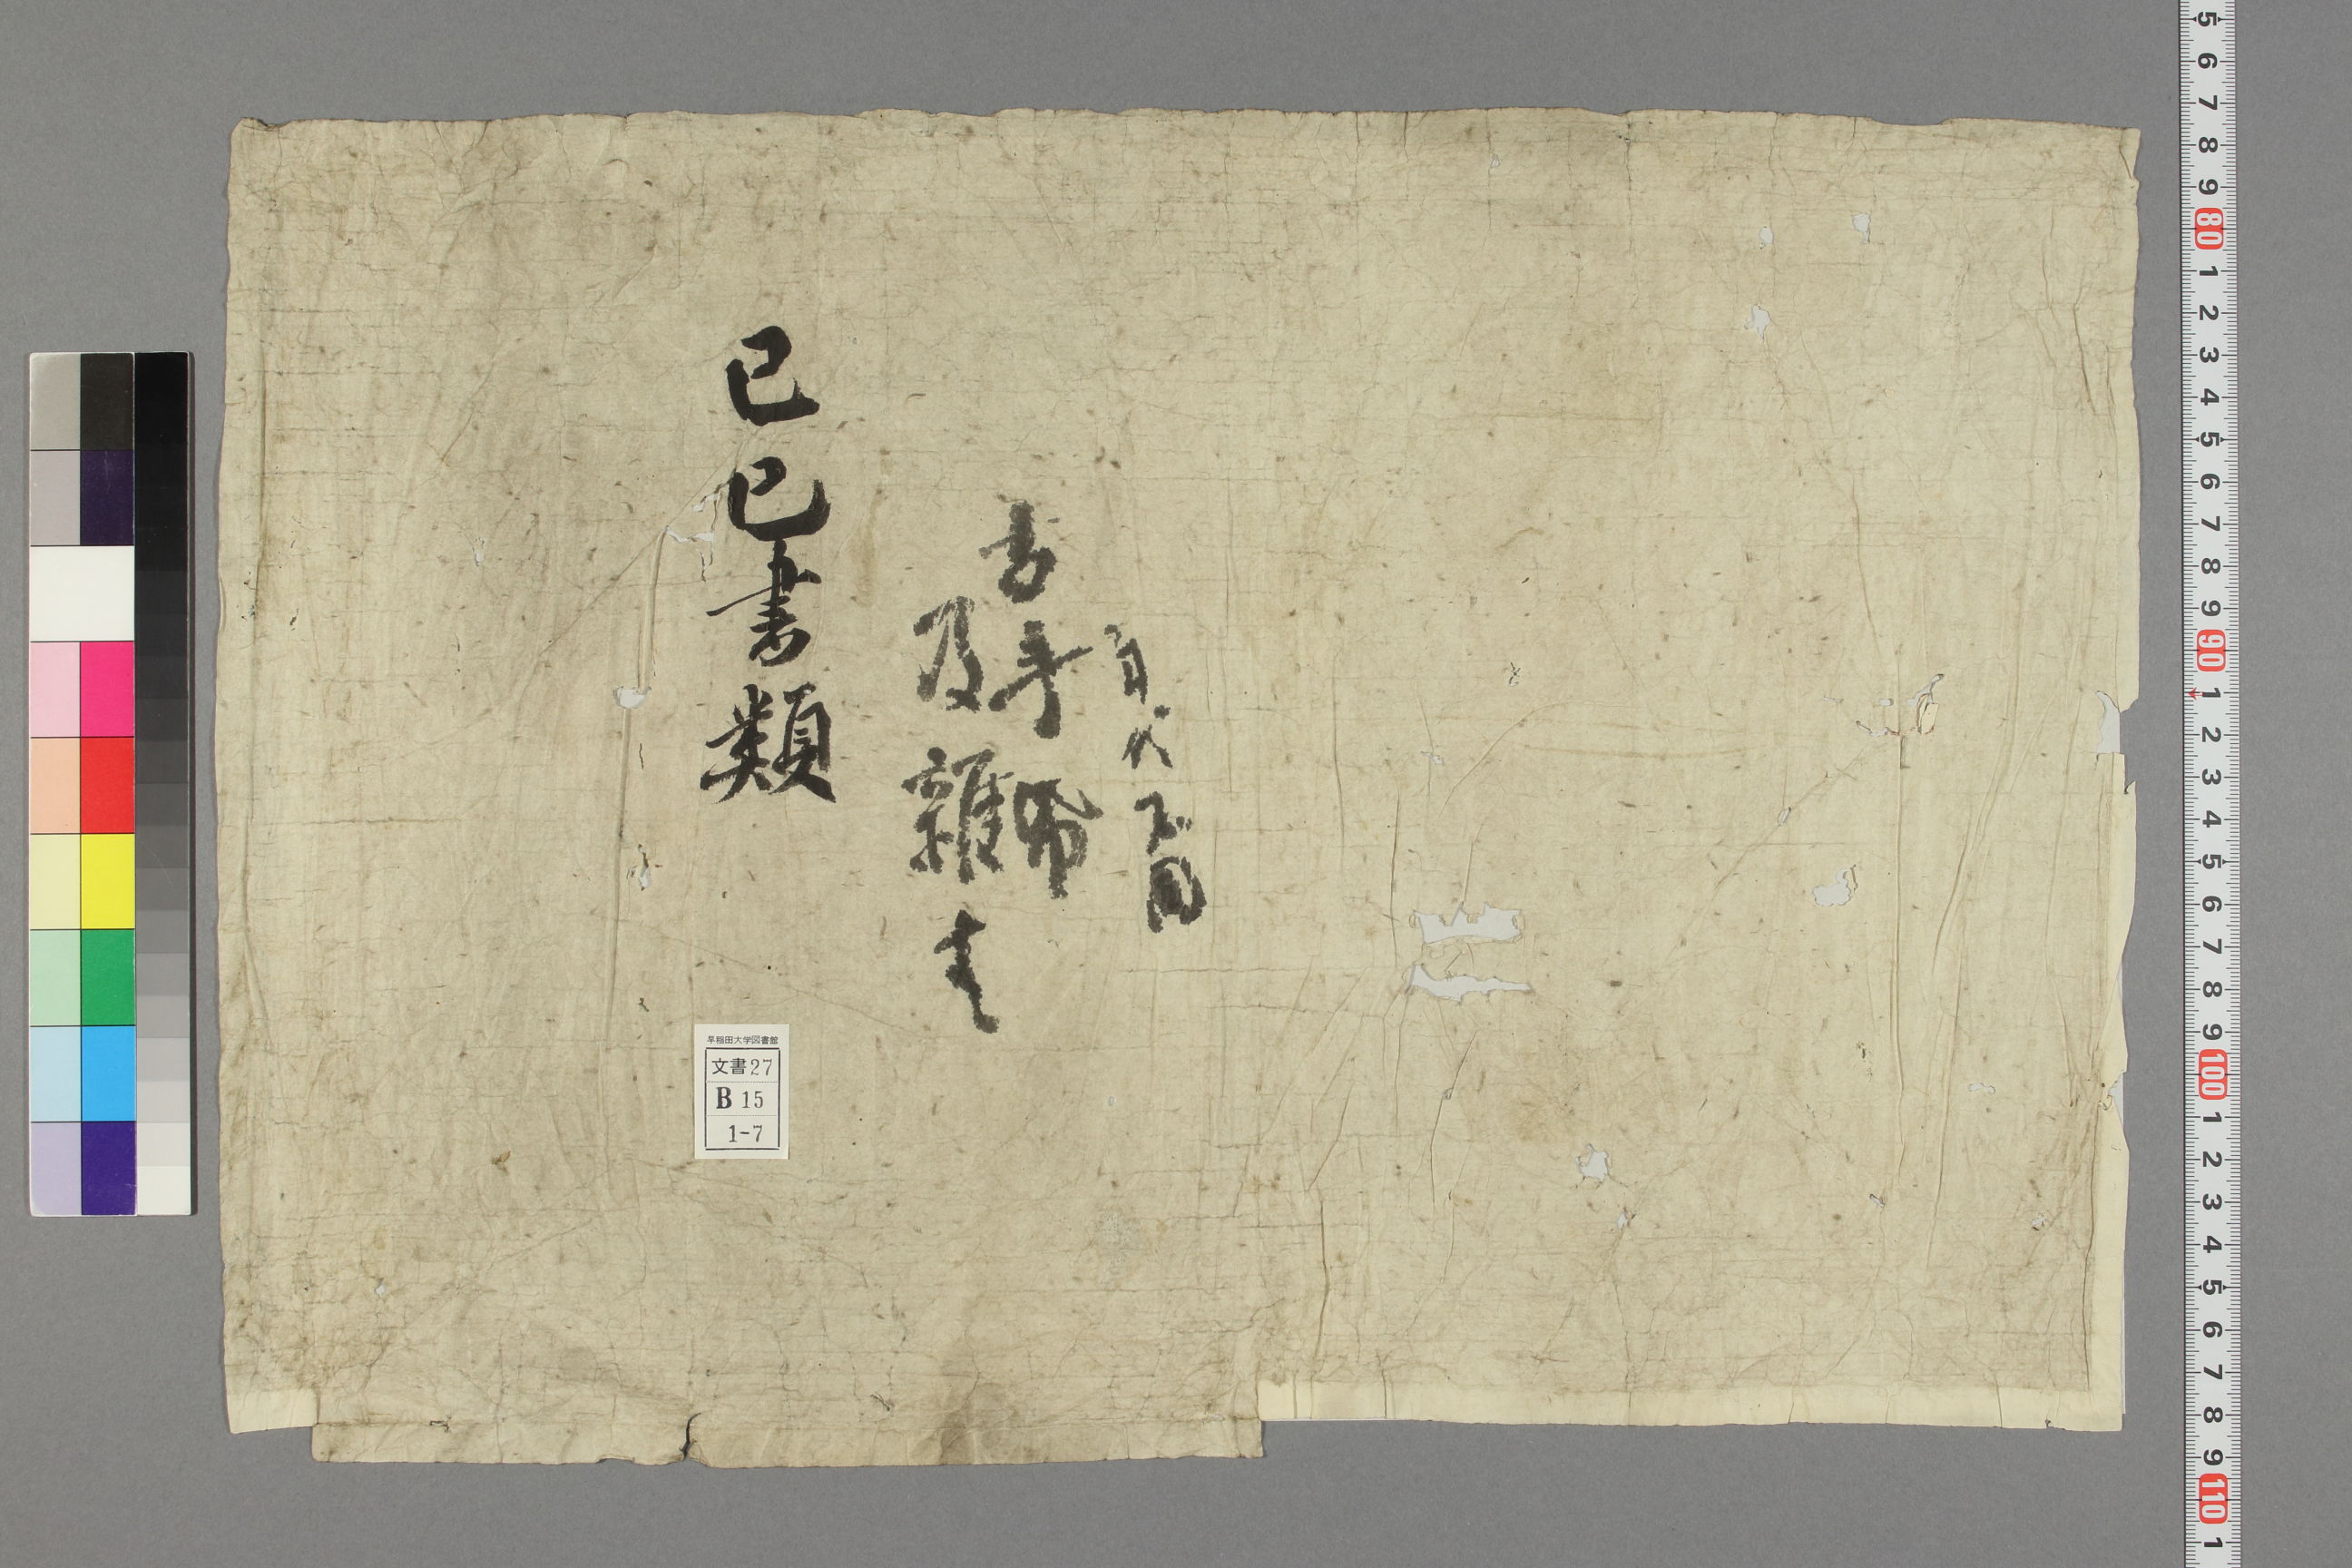 年代不同
古手帋
及雜書
己巳書類
早稲田大学図書館
文書27
B 15
1-7
5 6 7 8 9 80 1 2 3 4 5 6 7 8 9 90 1 2 3 4 5 6 7 8 9 100 1 2 3 4 5 6 7 8 9 110 1